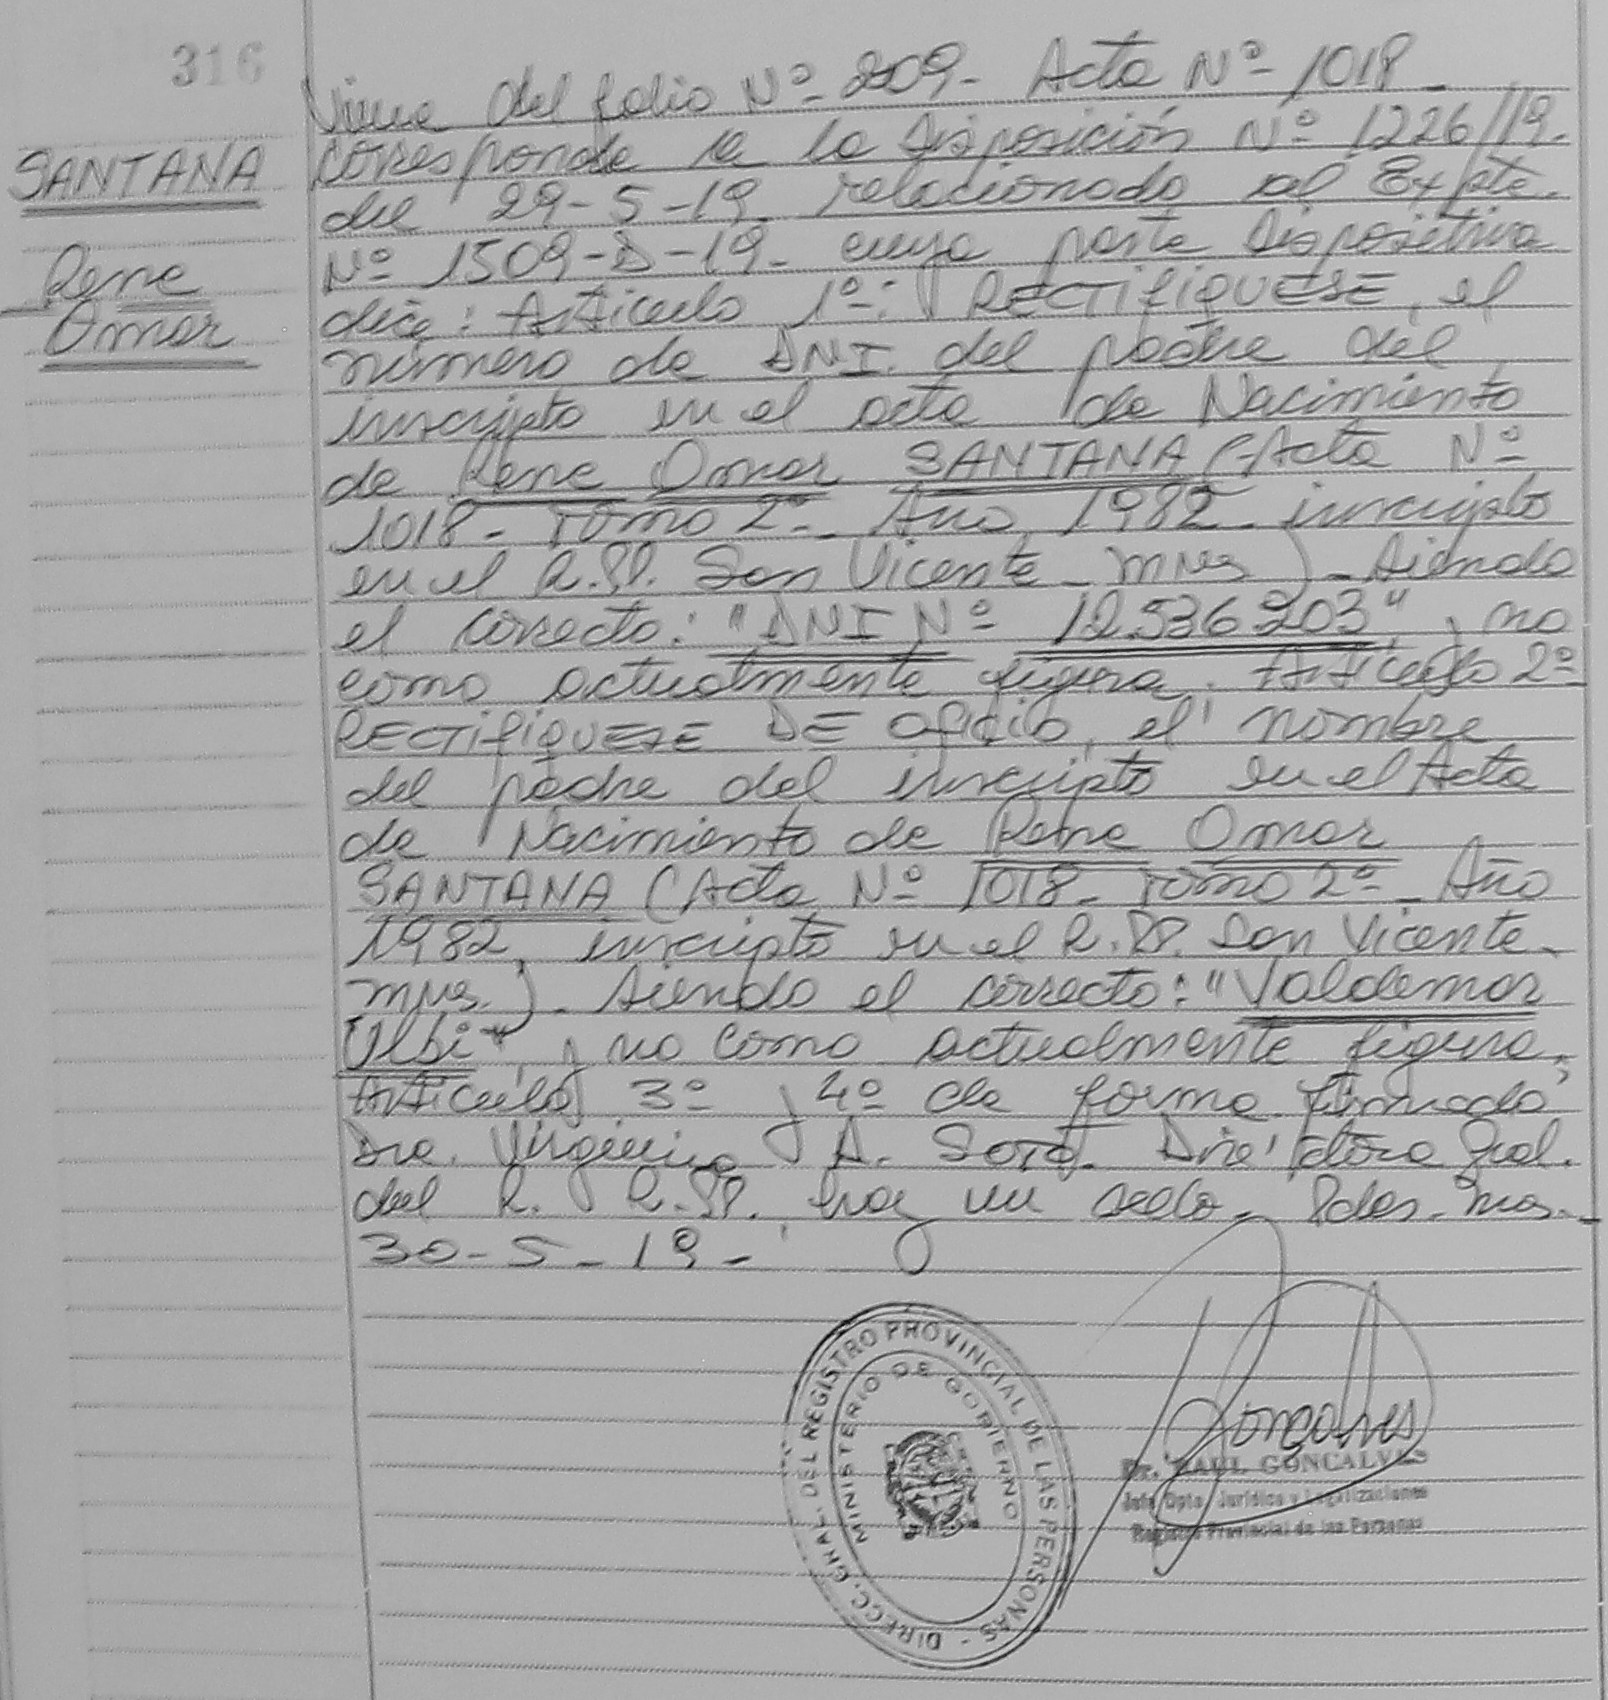 316
SANTANA
Rene
Omar
Viene del folio Nº 209- Acta Nº 1018-
corresponde a la Disposición Nº 1226/19.
del 29-5-19 relacionado al Expte.
Nº 1509-D-19- cuya parte Dispositiva
dice: Artículo 1º: RECTIFIQUESE, el
número de DNI. del padre del
inscripto en el acta de Nacimiento
de Rene Omar SANTANA (Acta Nº
1018- Tomo 2º- Año 1982- inscripto
en el R.P. San Vicente- Mnes)- Siendo
el correcto: "DNI Nº 12.536.203", y no
como actualmente figura. Artículo 2º
RECTIFIQUESE DE oficio, el nombre
del padre del inscripto en el Acta
de Nacimiento de Rene Omar
SANTANA (Acta Nº 1018- Tomo 2º- Año
1982, inscripto en el R.P. San Vicente-
Mnes.)- Siendo el correcto: "Valdemar
Ulbi", y no como actualmente figura.
Artículo 3º y 4º de forma. Firmado
Dra. Virginia A. Soto. Directora Gral.
del R. R.P. hay un sello- Pdas. Mnes.-
30-5-19-
DIRECC. GRAL. DEL REGISTRO PROVINCIAL DE LAS PERSONAS -
MINISTERIO DE GOBIERNO
Goncalves
Dr. RAUL GONCALVES
Jefe Dpto. Jurídico y Legalizaciones
Registro Provincial de las Personas